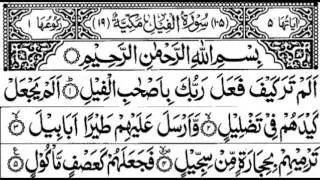 اٰیَاتُهَا ٥ (١٠٥) سُوْرَةُ الْفِيْلِ مَكِّيَّةٌ (١٩) رُكُوْعُهَا ١
بِسْمِ اللهِ الرَّحْمٰنِ الرَّحِيْمِ
اَلَمْ تَرَ كَيْفَ فَعَلَ رَبُّكَ بِاَصْحٰبِ الْفِيْلِ ١ اَلَمْ يَجْعَلْ
كَيْدَهُمْ فِيْ تَضْلِيْلٍ ٢ وَّاَرْسَلَ عَلَيْهِمْ طَيْرًا اَبَابِيْلَ ٣
تَرْمِيْهِمْ بِحِجَارَةٍ مِّنْ سِجِّيْلٍ ٤ فَجَعَلَهُمْ كَعَصْفٍ مَّاْكُوْلٍ ٥